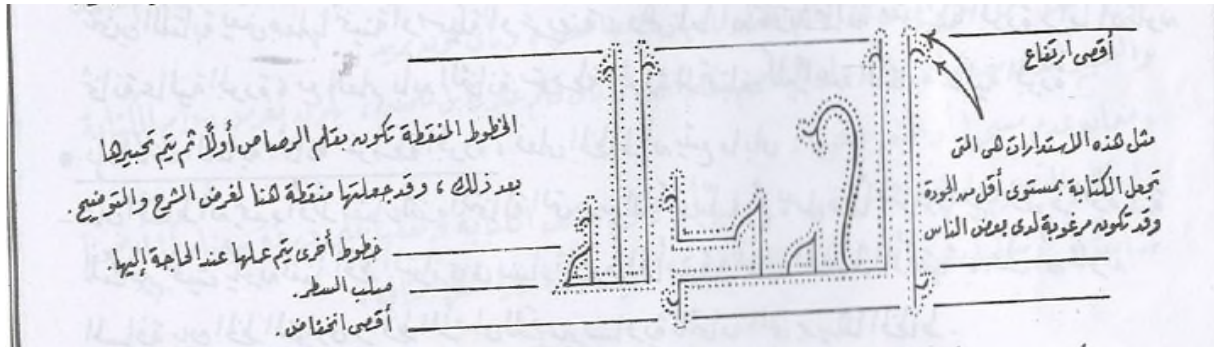 أقصى ارتفاع
مثل هذه الاستدارات هى التى
تجعل الكتابة بمستوى أقل من الجودة
وقد تكون مرغوبة لدى بعض الناس
الخطوط المنقطة تكون بقلم الرصاص أولاً ثم يتم تحبيرها
بعد ذلك ، وقد جعلتها منقطة هنا لغرض الشرح والتوضيح
خطوط أخرى يتم عملها عند الحاجة إليها.
صلب السطر.
أقصى انخفاض.